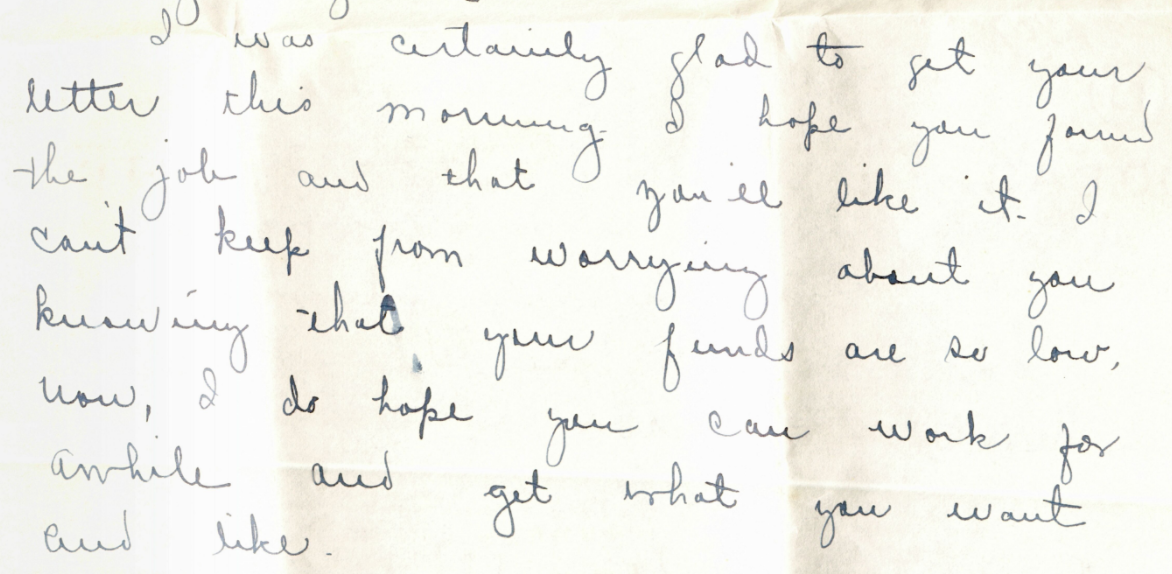 I was certainly glad to get your
letter this morning. I hope you found
the job and that you'll like it. I
can't keep from worrying about you
knowing that your funds are so low,
now, I do hope you can work for
awhile and get what you want
and like.